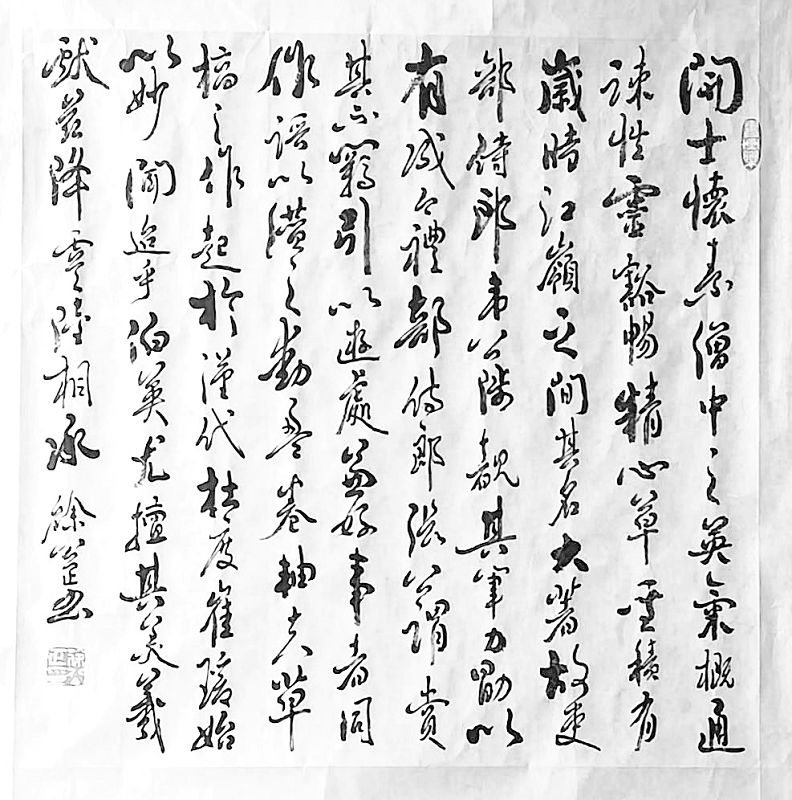 開士懷素僧中之英氣概通
疎性靈豁暢精心草聖積有
歲時江嶺之間其名大著故吏
部侍郎韋公陟覩其筆力勖以
有成今禮部侍郎張公謂賞
其不羈引以遊處兼好事者同
作以讚之動盈卷軸夫草
槁之作起於漢代杜度崔瑗始
以妙聞迨乎伯英尤擅其美羲
獻茲降虞陸相承 書